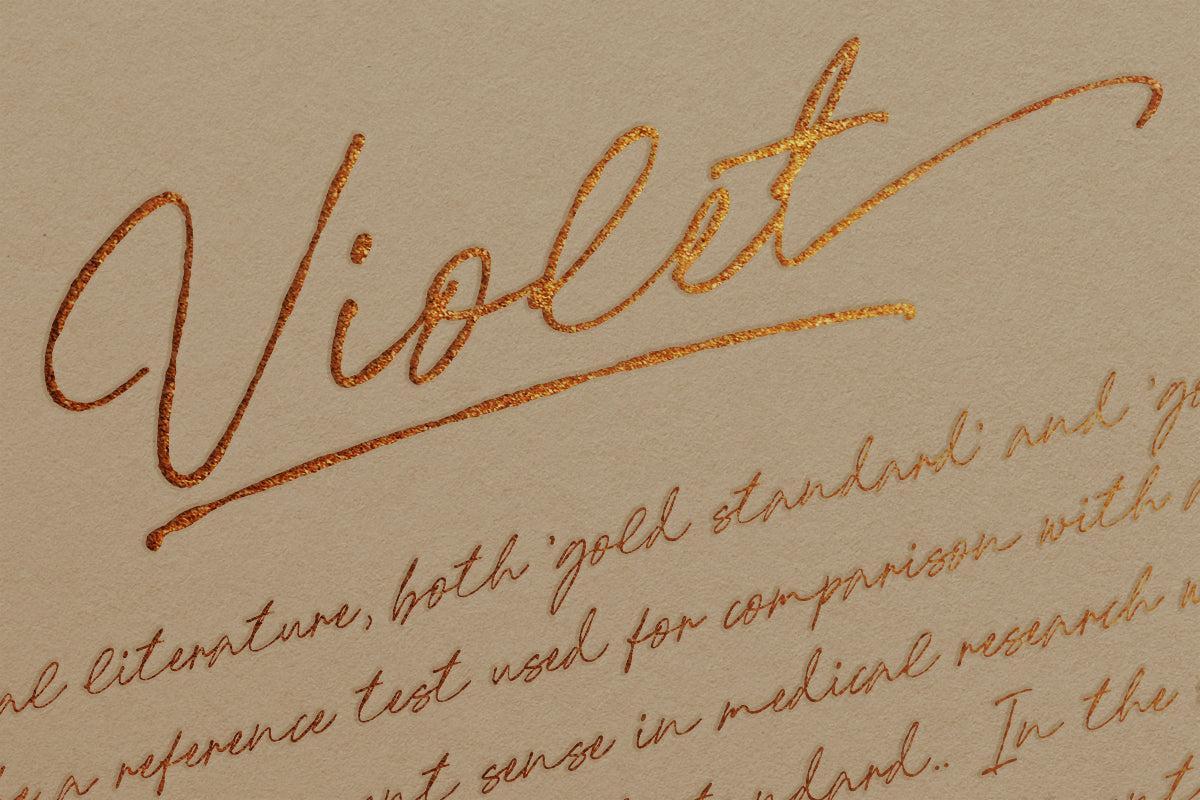 Violet
literature, both 'gold standard' and
a reference test used for comparison with
sense in medical research
In the